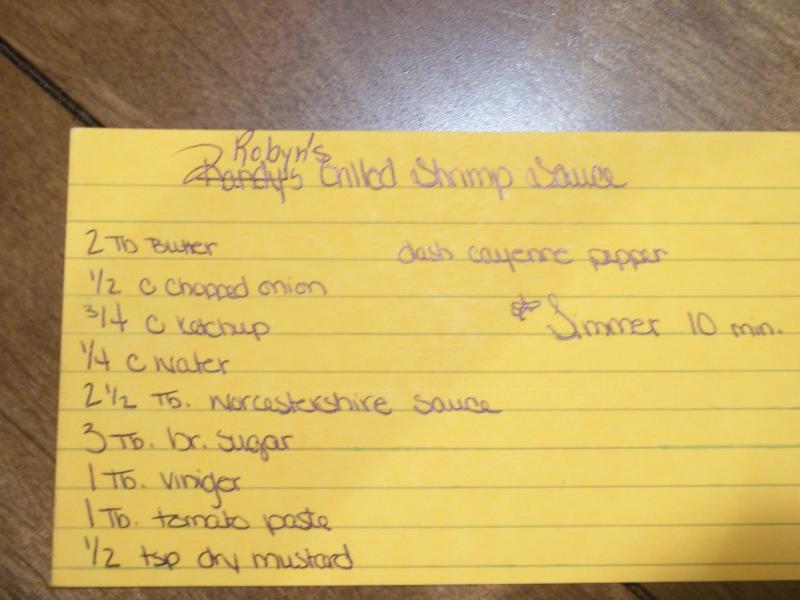 Robyn's
Randy's Grilled Shrimp Sauce
2 Tb Butter
dash cayenne pepper
1/2 c chopped onion
3/4 c ketchup
* Simmer 10 min.
1/4 c water
2 1/2 Tb. Worcestershire sauce
3 Tb. br. sugar
1 Tb. viniger
1 Tb. tomato paste
1/2 tsp dry mustard